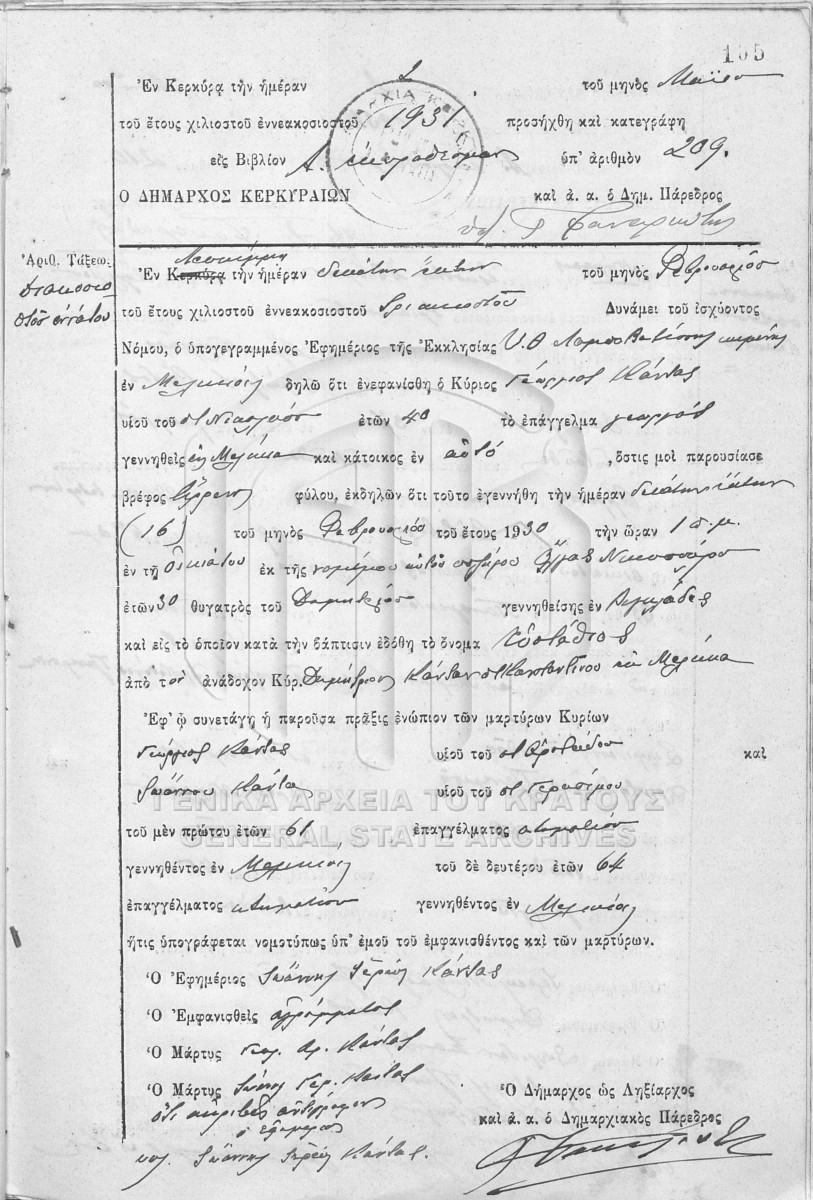 105
Ἐν Κερκύρᾳ τὴν ἡμέραν 2 τοῦ μηνὸς Μαΐου
τοῦ ἔτους χιλιοστοῦ ἐννεακοσιοστοῦ 1931 προσήχθη καὶ κατεγράφη
εἰς Βιβλίον Α. ὑπ' ἀριθμὸν 209.
Ο ΔΗΜΑΡΧΟΣ ΚΕΡΚΥΡΑΙΩΝ καὶ ἀ. ἀ. ὁ Δημ. Πάρεδρος
Ἀριθ. Τάξεως
διακοσιοστὸν ἐννάτου
Λευκίμμῃ
Ἐν Κερκύρᾳ τὴν ἡμέραν δεκάτην ἕκτην τοῦ μηνὸς Φεβρουαρίου
τοῦ ἔτους χιλιοστοῦ ἐννεακοσιοστοῦ τριακοστοῦ Δυνάμει τοῦ ἰσχύοντος
Νόμου, ὁ ὑπογεγραμμένος Ἐφημέριος τῆς Ἐκκλησίας Υ.Θ
ἐν Μελικίᾳ δηλῶ ὅτι ἐνεφανίσθη ὁ Κύριος Γεώργιος Κάντας
υἱοῦ τοῦ Νικολάου ἐτῶν 40 τὸ ἐπάγγελμα γεωργὸς
γεννηθεὶς ἐν Μελίκια καὶ κάτοικος ἐν αὐτό, ὅστις μοὶ παρουσίασε
βρέφος ἄρρεν φύλου, ἐκδηλῶν ὅτι τοῦτο ἐγεννήθη τὴν ἡμέραν δεκάτην ἕκτην
(16) τοῦ μηνὸς Φεβρουαρίου τοῦ ἔτους 1930 τὴν ὥραν 1 π.μ.
ἐν τῇ οἰκίᾳ του ἐκ τῆς νομίμου αὐτοῦ συζύγου
ἐτῶν 30 θυγατρὸς τοῦ Δημητρίου γεννηθείσης ἐν
καὶ εἰς τὸ ὁποῖον κατὰ τὴν βάπτισιν ἐδόθη τὸ ὄνομα Εὐστάθιος
ἀπὸ τὸν ἀνάδοχον Κύρ. Δημήτριον Κάνταν Κωνσταντίνου ἐκ Μελίκια
Ἐφ' ᾧ συνετάγη ἡ παροῦσα πρᾶξις ἐνώπιον τῶν μαρτύρων Κυρίων
Γεώργιος Κάντας υἱοῦ τοῦ καὶ
Ἰωάννου Κάντα υἱοῦ τοῦ Γερασίμου
ΓΕΝΙΚΑ ΑΡΧΕΙΑ ΤΟΥ ΚΡΑΤΟΥΣ
GENERAL STATE ARCHIVES
τοῦ μὲν πρώτου ἐτῶν 61 ἐπαγγέλματος κτηματίου
γεννηθέντος ἐν Μελικίᾳ τοῦ δὲ δευτέρου ἐτῶν 64
ἐπαγγέλματος κτηματίου γεννηθέντος ἐν Μελικίᾳ
ἥτις ὑπογράφεται νομοτύπως ὑπ' ἐμοῦ τοῦ ἐμφανισθέντος καὶ τῶν μαρτύρων.
Ὁ Ἐφημέριος Ἰωάννης Ἱερεὺς Κάντας
Ὁ Ἐμφανισθεὶς ἀγράμματος
Ὁ Μάρτυς Γεώρ. Κάντας
Ὁ Μάρτυς Ἰωάν. Γερ. Κάντας
Ὁ Δήμαρχος ὡς Ληξίαρχος
ὅτι ἀκριβὲς ἀντίγραφον
καὶ ἀ. ἀ. ὁ Δημαρχιακὸς Πάρεδρος
ὁ ἐφημέριος
υπ. Ἰωάννης Ἱερεὺς Κάντας.